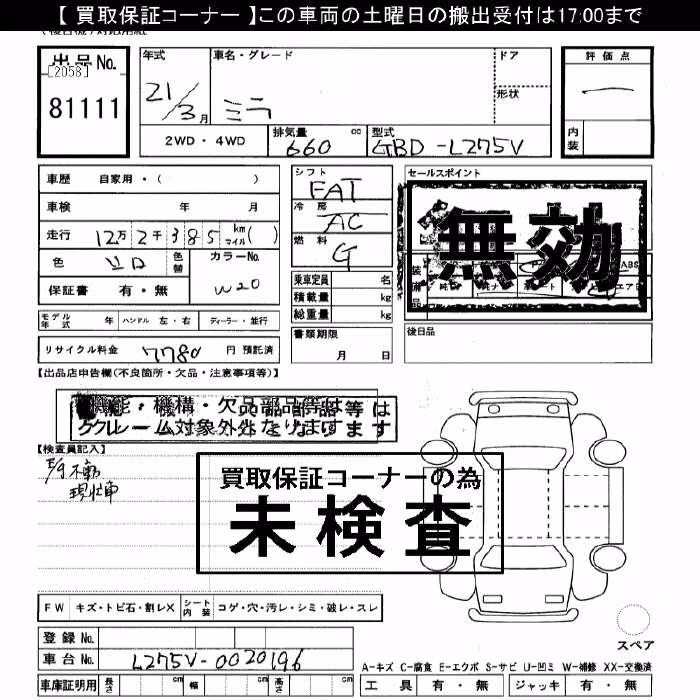 【 買取保証コーナー 】この車両の土曜日の搬出受付は17:00まで
出品No.
[2058]
81111
年式
21/3月
車名・グレード
ミラ
ドア
形状
評価点
内装
2WD・4WD
排気量
660 cc
型式
GBD-L275V
車歴 自家用・( )
車検 年 月
走行 12万2千385 km マイル( )
色
色替
カラーNo.
W20
保証書 有・無
モデル年式 年 ハンドル 左・右 ディーラー・並行
リサイクル料金 7780 円 預託済
シフト
FAT
冷房
AC
燃料
G
乗車定員 名
積載量 kg
総重量 kg
書類期限
月 日
セールスポイント
無効
後日品
【出品店申告欄(不良箇所・欠品・注意事項等)】
機能・機構・欠品部品等は
クレーム対象外となります
【検査員記入】
E/g不動
現状車
買取保証コーナーの為
未検査
FW キズ・トビ石・割レX シート内装 コゲ・穴・汚レ・シミ・破レ・スレ
登録No.
車台No. L275V-0020196
車庫証明用 長さ cm 幅 cm 高さ cm
スペア
A-キズ C-腐食 E-エクボ S-サビ U-凹ミ W-補修 XX-交換済
工具 有・無 ジャッキ 有・無